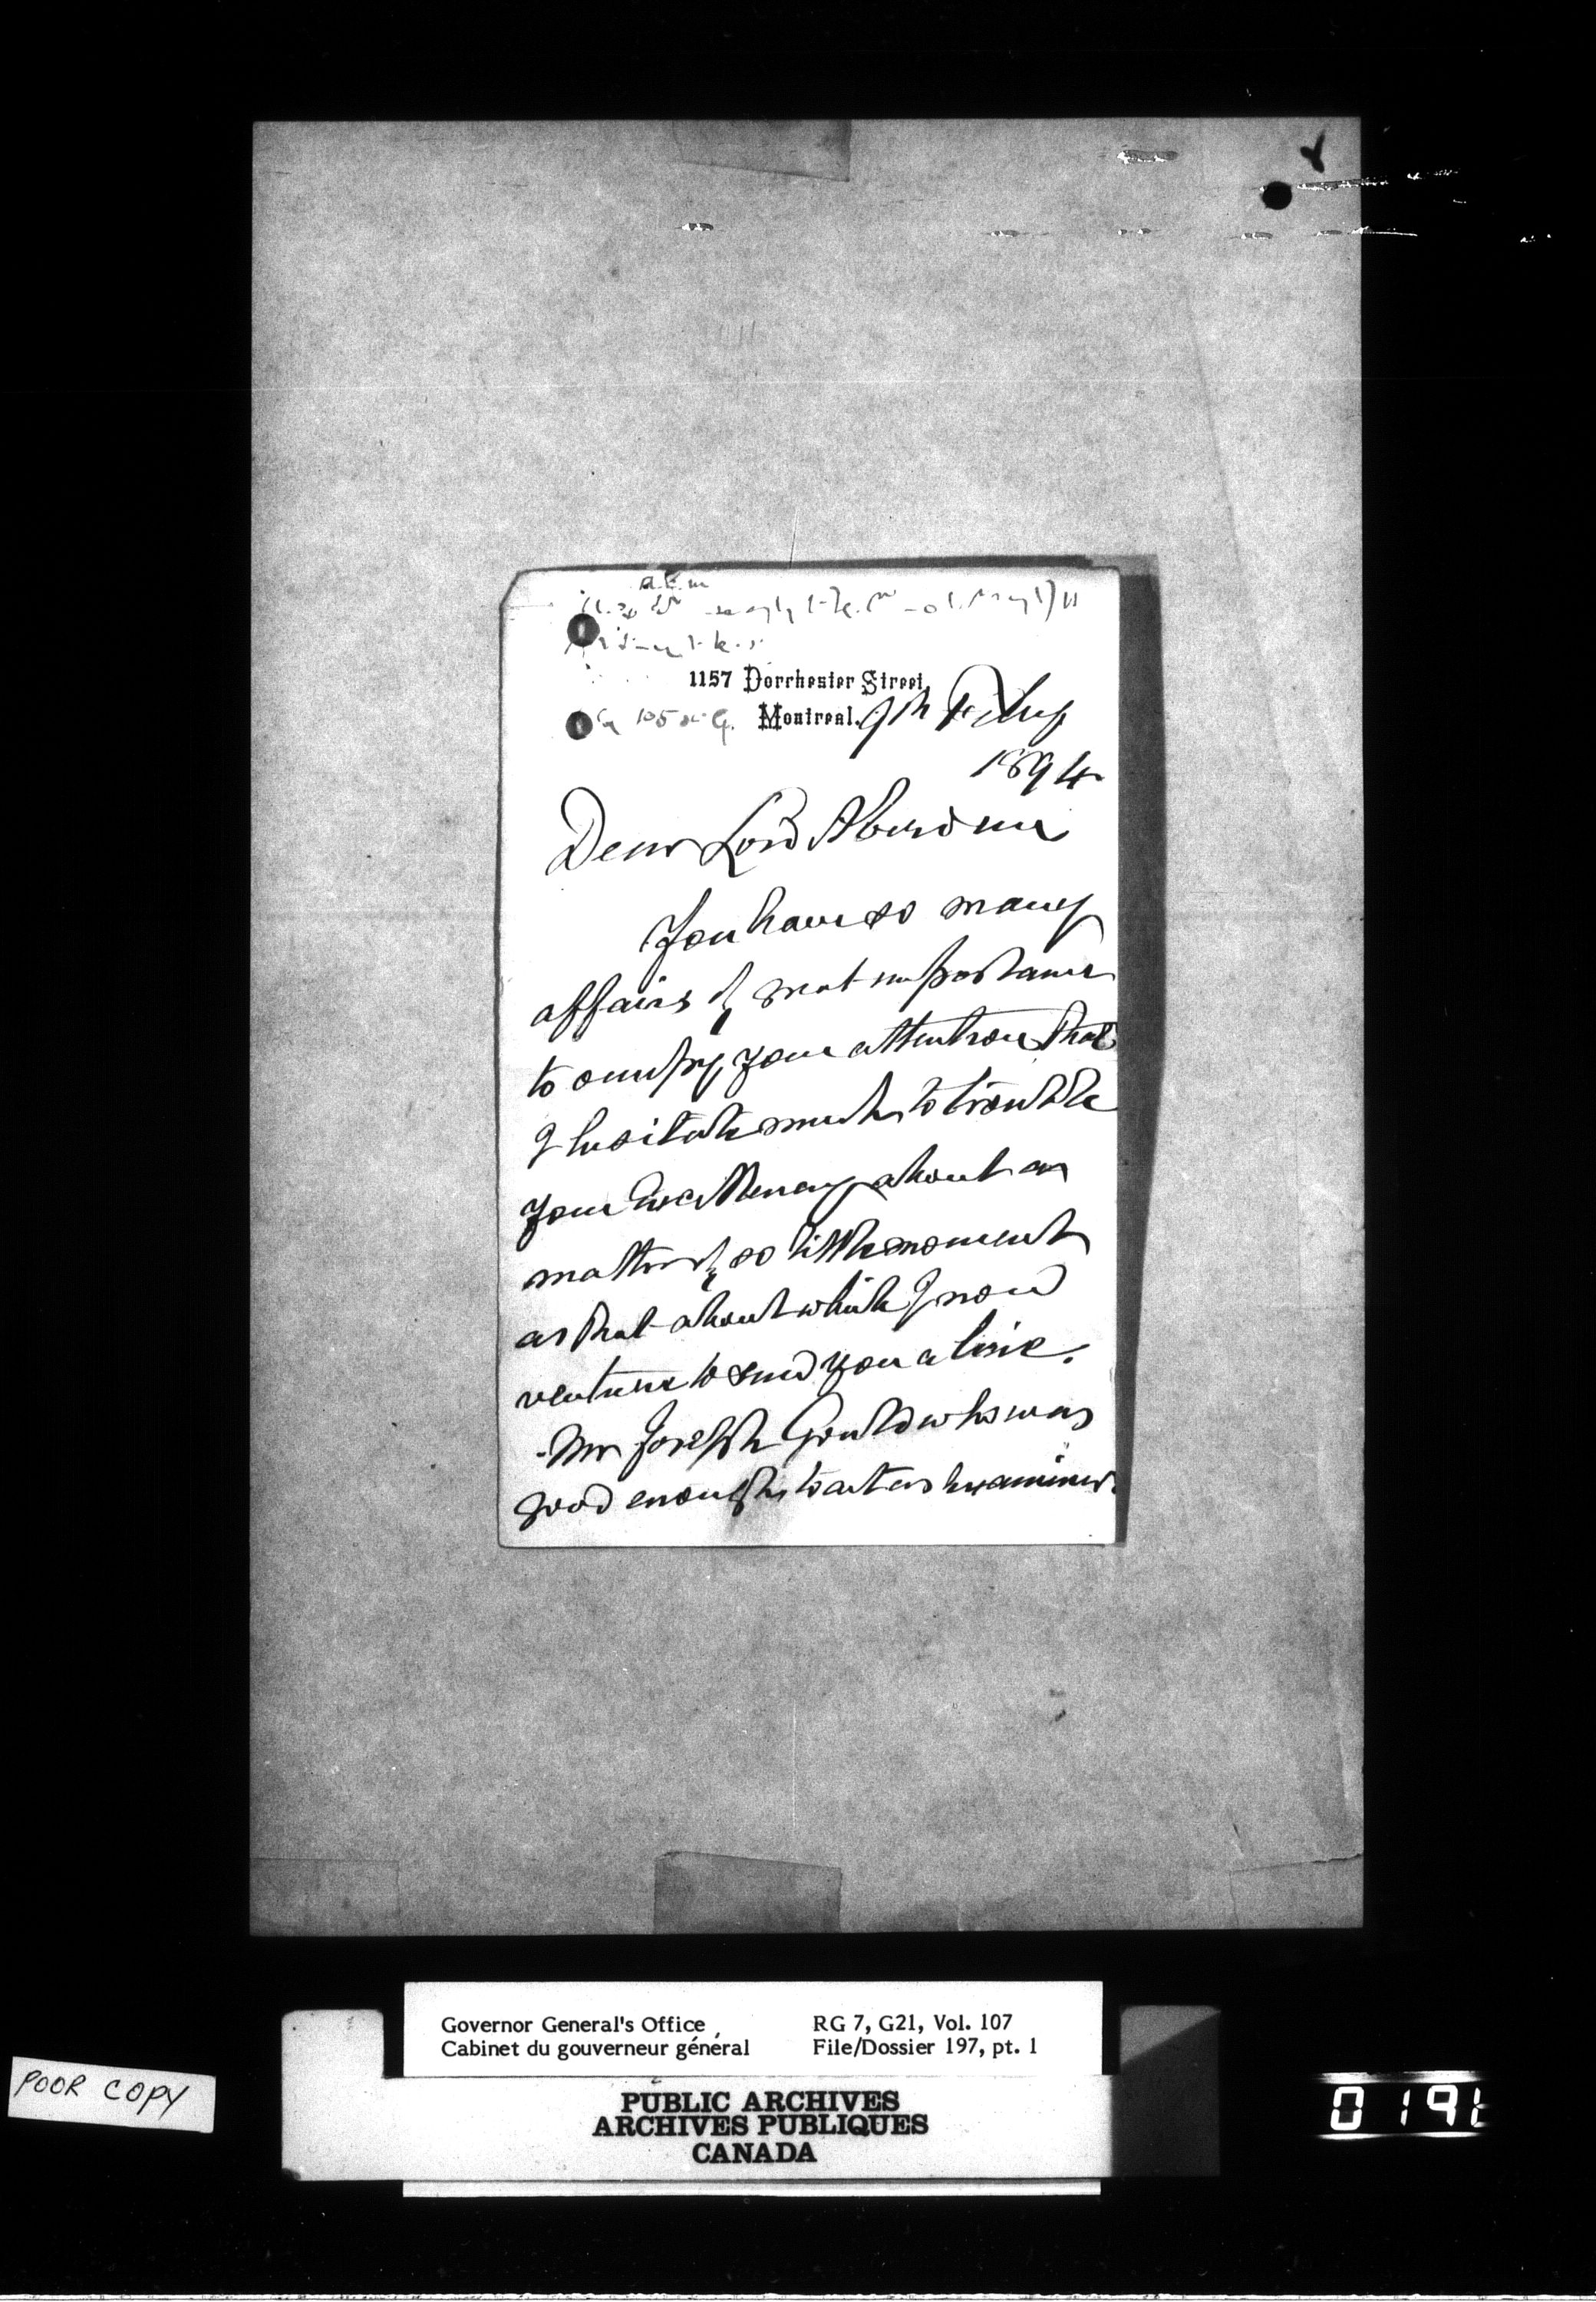 1157 Dorchester Street,
Montreal. 9th Feby
1894
Dear Lord Aberdeen
You have so many
affairs of great importance
to occupy your attention that
I hesitate much to trouble
your Excellency about a
matter of so little moment
as that about which I now
venture to send you a line.
Mr Joseph Gould who was
good enough to act as examiner.
Governor General's Office
Cabinet du gouverneur général
RG 7, G21, Vol. 107
File/Dossier 197, pt. 1
PUBLIC ARCHIVES
ARCHIVES PUBLIQUES
CANADA
POOR COPY
0191